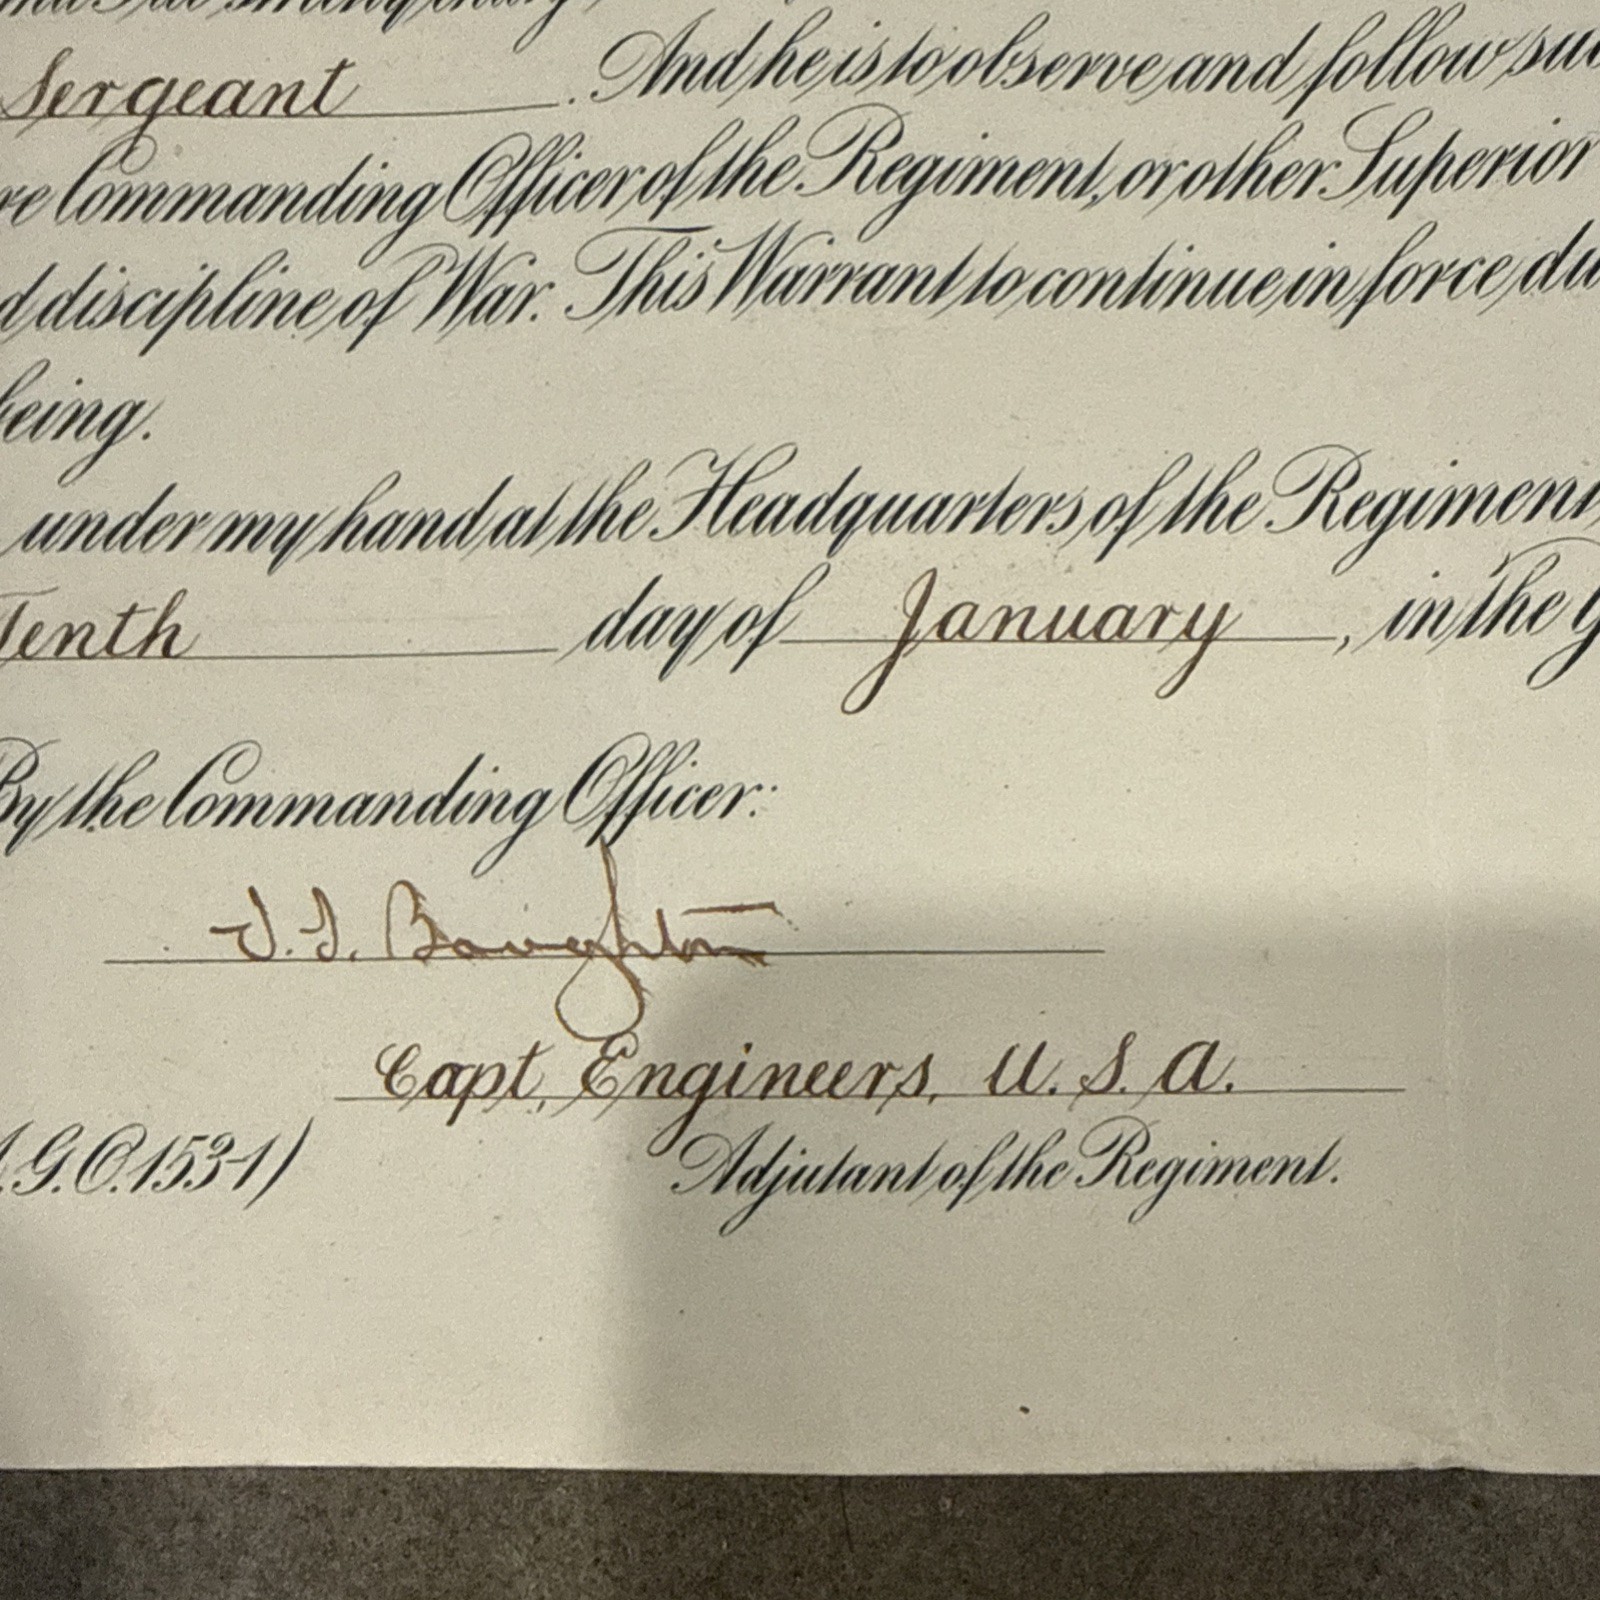 Sergeant . And he is to observe and follow suc
re Commanding Officer of the Regiment, or other Superior
d discipline of War. This Warrant to continue in force du
being.
under my hand at the Headquarters of the Regiment,
Tenth day of January, in the
By the Commanding Officer:
J. J. Baughton
Capt. Engineers, U. S. A.
A.G.O. 153-1)
Adjutant of the Regiment.